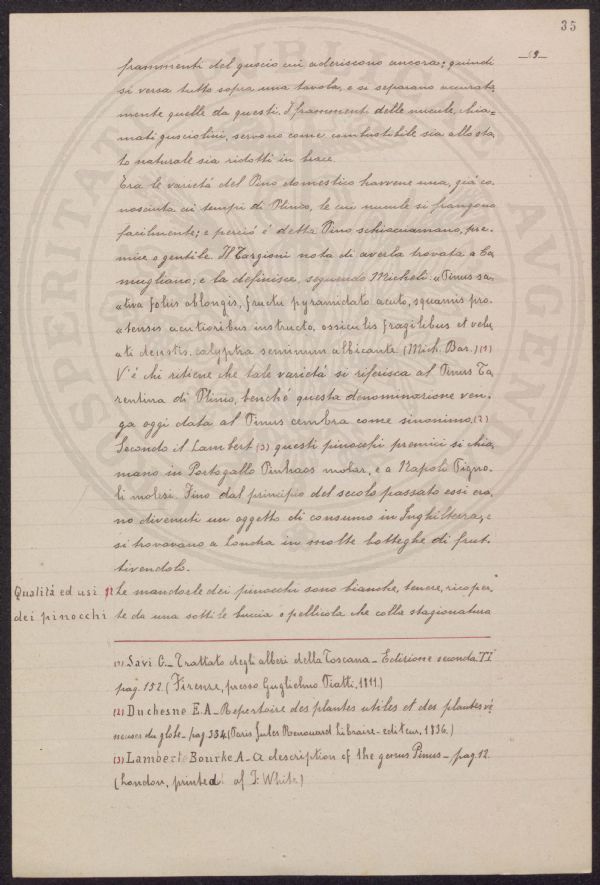 35
frammenti del guscio cui aderiscono ancora; quindi
si versa tutto sopra una tavola, e si separano accurata
mente quelle da questi. I frammenti delle nucule, chia=
mati gusciolini, servono come combustibile sia allo sta,
to naturale sia ridotti in brace.
Fra le varietà del Pino domestico havvene una, già co.
nosciuta ai tempi di Plinio, le cui nucule si frangono
facilmente; e perciò è detta Pino schiacciamano, pre,
mice o gentile. Il Targioni nota di averla trovata a Ca
mugliano; e la definisce, seguendo Micheli: "Pinus sa,
"tiva foliis oblongis, fructu pyramidato acuto, squamis pro,
"tensis acutioribus instructo, ossiculis fragilibus et velu,
"ti dentis, calyptra seminum albicante. (Mich. Bar.) (1)
V'è chi ritiene che tale varietà si riferisca al Pinus Ta,
rentina di Plinio, benchè questa denominazione ven,
ga oggi data al Pinus cembra come sinonimo. (2)
Secondo il Lambert (3) questi pinocchi premici si chia,
mano in Portogallo Pinhaos molar, e a Napoli Pigno,
li molesi. Fino dal principio del secolo passato essi era,
no divenuti un oggetto di consumo in Inghilterra, e
si trovavano a Londra in molte botteghe di frut,
tivendolo.
Qualità ed usi
dei pinocchi
Le mandorle dei pinocchi sono bianche, tenere, ricoper,
te da una sottile buccia o pellicola che colla stagionatura
(1) Savi G. - Trattato degli alberi della Toscana - Edizione seconda. T I
pag. 152. (Firenze, presso Guglielmo Piatti, 1811.)
(2) Duchesne E.A. - Repertoire des plantes utiles et des plantes vé
neuses du globe - pag. 334 (Paris Jules Renouard libraire-editeur, 1836.)
(3) Lambert Bourke A. - A description of the genus Pinus - pag. 12
(London, printed of J. White)